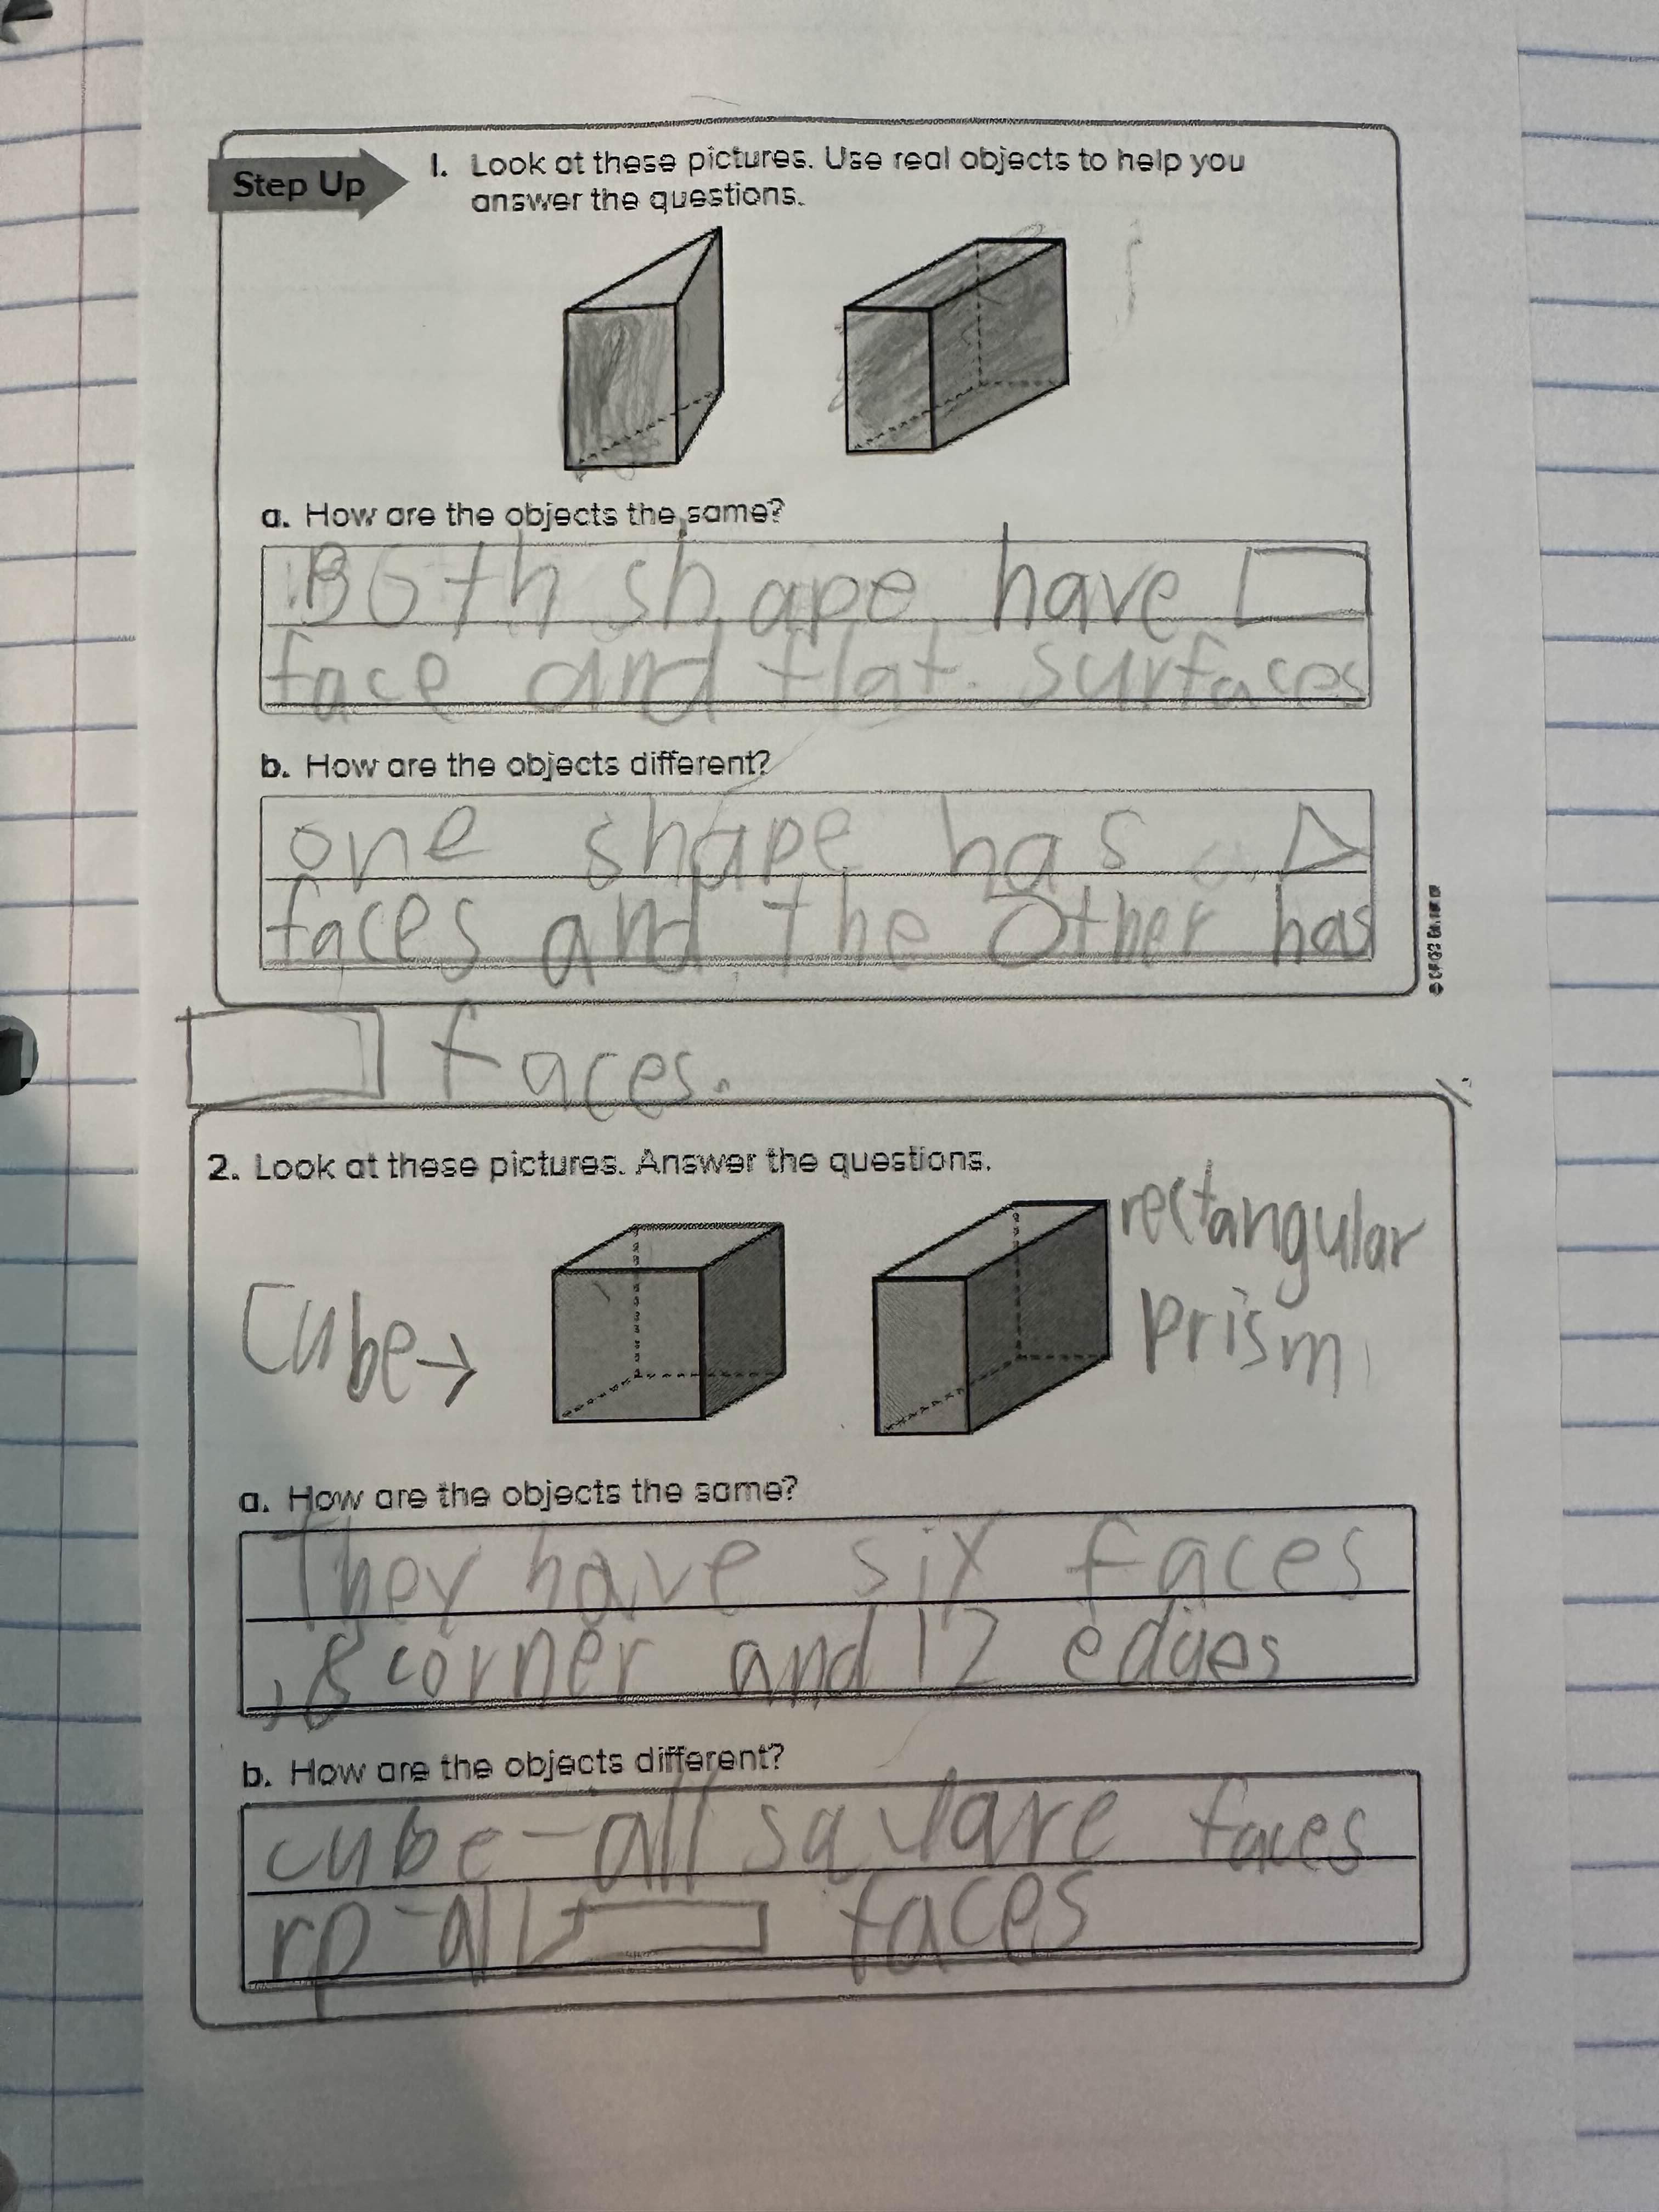 Step Up
1. Look at these pictures. Use real objects to help you
answer the questions.
a. How are the objects the same?
Both shape have
face and flat surfaces
b. How are the objects different?
one shape has
faces and the other has
faces.
2. Look at these pictures. Answer the questions.
rectangular
prism
Cube →
a. How are the objects the same?
They have six faces
, 8 corner and 12 edges
b. How are the objects different?
cube - all square faces
rp - all faces